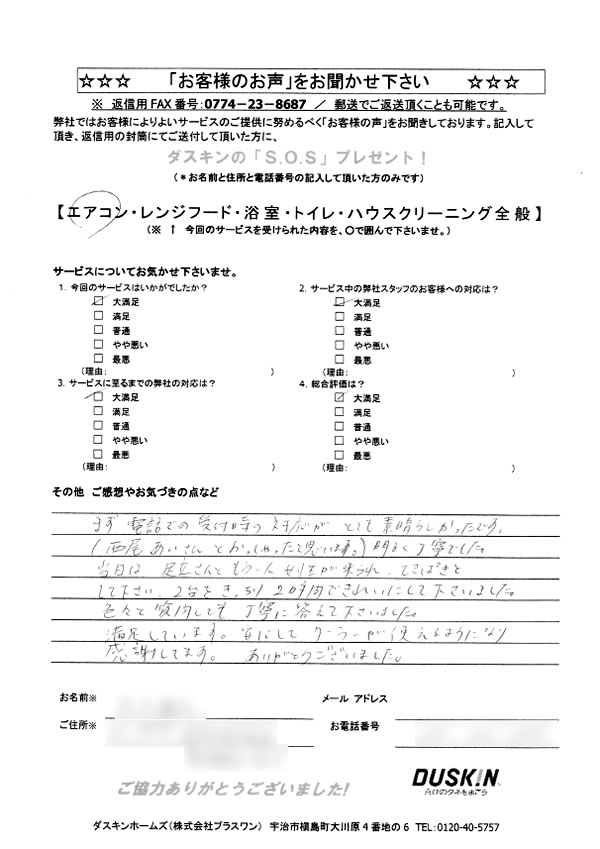 ☆☆☆ 「お客様のお声」をお聞かせ下さい ☆☆☆
※ 返信用FAX番号:0774-23-8687 / 郵送でご返送頂くことも可能です。
弊社ではお客様によりよいサービスのご提供に努めるべく「お客様の声」をお聞きしております。記入して
頂き、返信用の封筒にてご送付して頂いた方に、
ダスキンの「S.O.S」プレゼント!
(*お名前と住所と電話番号の記入して頂いた方のみです)
【エアコン・レンジフード・浴室・トイレ・ハウスクリーニング全般】
(※ ↑ 今回のサービスを受けられた内容を、○で囲んで下さいませ。)
サービスについてお気かせ下さいませ。
1. 今回のサービスはいかがでしたか?
大満足
満足
普通
やや悪い
最悪
(理由: )
2. サービス中の弊社スタッフのお客様への対応は?
大満足
満足
普通
やや悪い
最悪
(理由: )
3. サービスに至るまでの弊社の対応は?
大満足
満足
普通
やや悪い
最悪
(理由: )
4. 総合評価は?
大満足
満足
普通
やや悪い
最悪
(理由: )
その他 ご感想やお気づきの点など
まず 電話での受付時の対応が とても 素晴らしかったです。
(西尾あいさん とおっしゃったと思います。) 明るく丁寧でした。
当日は 足立さんともう一人 女性が来られ、てきぱきと
して下さい、2台を きっちり 2時間できれいにして下さいました。
色々と質問しても 丁寧に答えて下さいました。
満足しています。安心して クーラーが使えるようになり
感謝してます。 ありがとうございました。
お名前※
メール アドレス
ご住所※
お電話番号
ご協力ありがとうございました!
DUSKIN
ダスキンホームズ(株式会社プラスワン) 宇治市槇島町大川原4番地の6 TEL:0120-40-5757